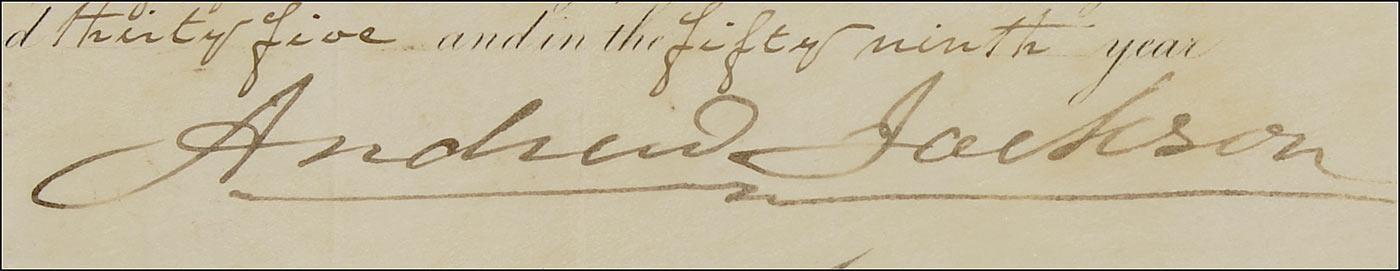 d thirty five and in the fifty ninth year
Andrew Jackson